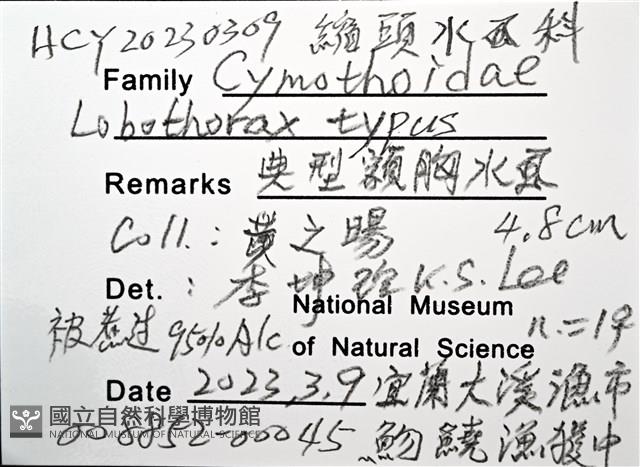 HCY20230309 縮頭水虱科
Family Cymothoidae
Lobothorax typus
Remarks 典型額胸水虱
Coll.: 黃之暘 4.8cm
Det.: 李坤瑄 K.S. Lee
National Museum
被蒸过 95% Alc n.=1♀
of Natural Science
Date 2023.3.9 宜蘭大溪漁市
國立自然科學博物館
NATIONAL MUSEUM OF NATURAL SCIENCE
006852-00045 魩鱙漁獲中